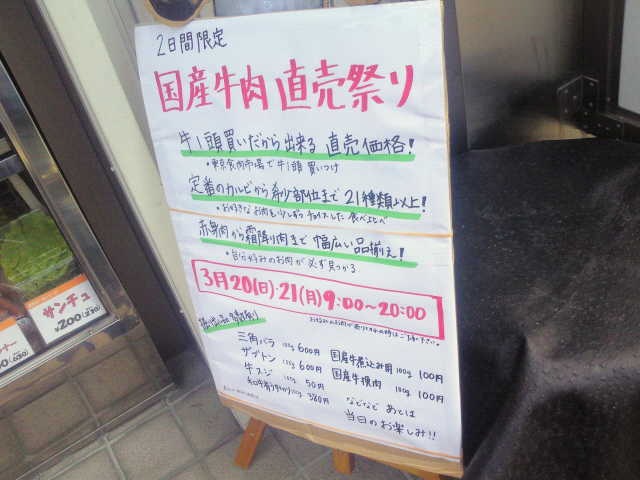 2日間限定
国産牛肉 直売祭り
牛1頭買いだから出来る 直売価格!
・東京食肉市場で牛1頭 買いつけ
定番のカルビから希少部位まで 21種類以上!
・お好きなお肉を少しずつ チョイスした 食べ比べ
赤身肉から霜降り肉まで 幅広い品揃え!
・自分好みのお肉が必ず見つかる
3月20(日)・21(月) 9:00〜20:00
三角バラ 100g 600円
ザブトン 100g 600円
牛スジ 100g 50円
380円
国産牛煮込み用 100g 100円
国産牛挽肉 100g 100円
などなど あとは
当日のお楽しみ!!
サンチュ
¥200